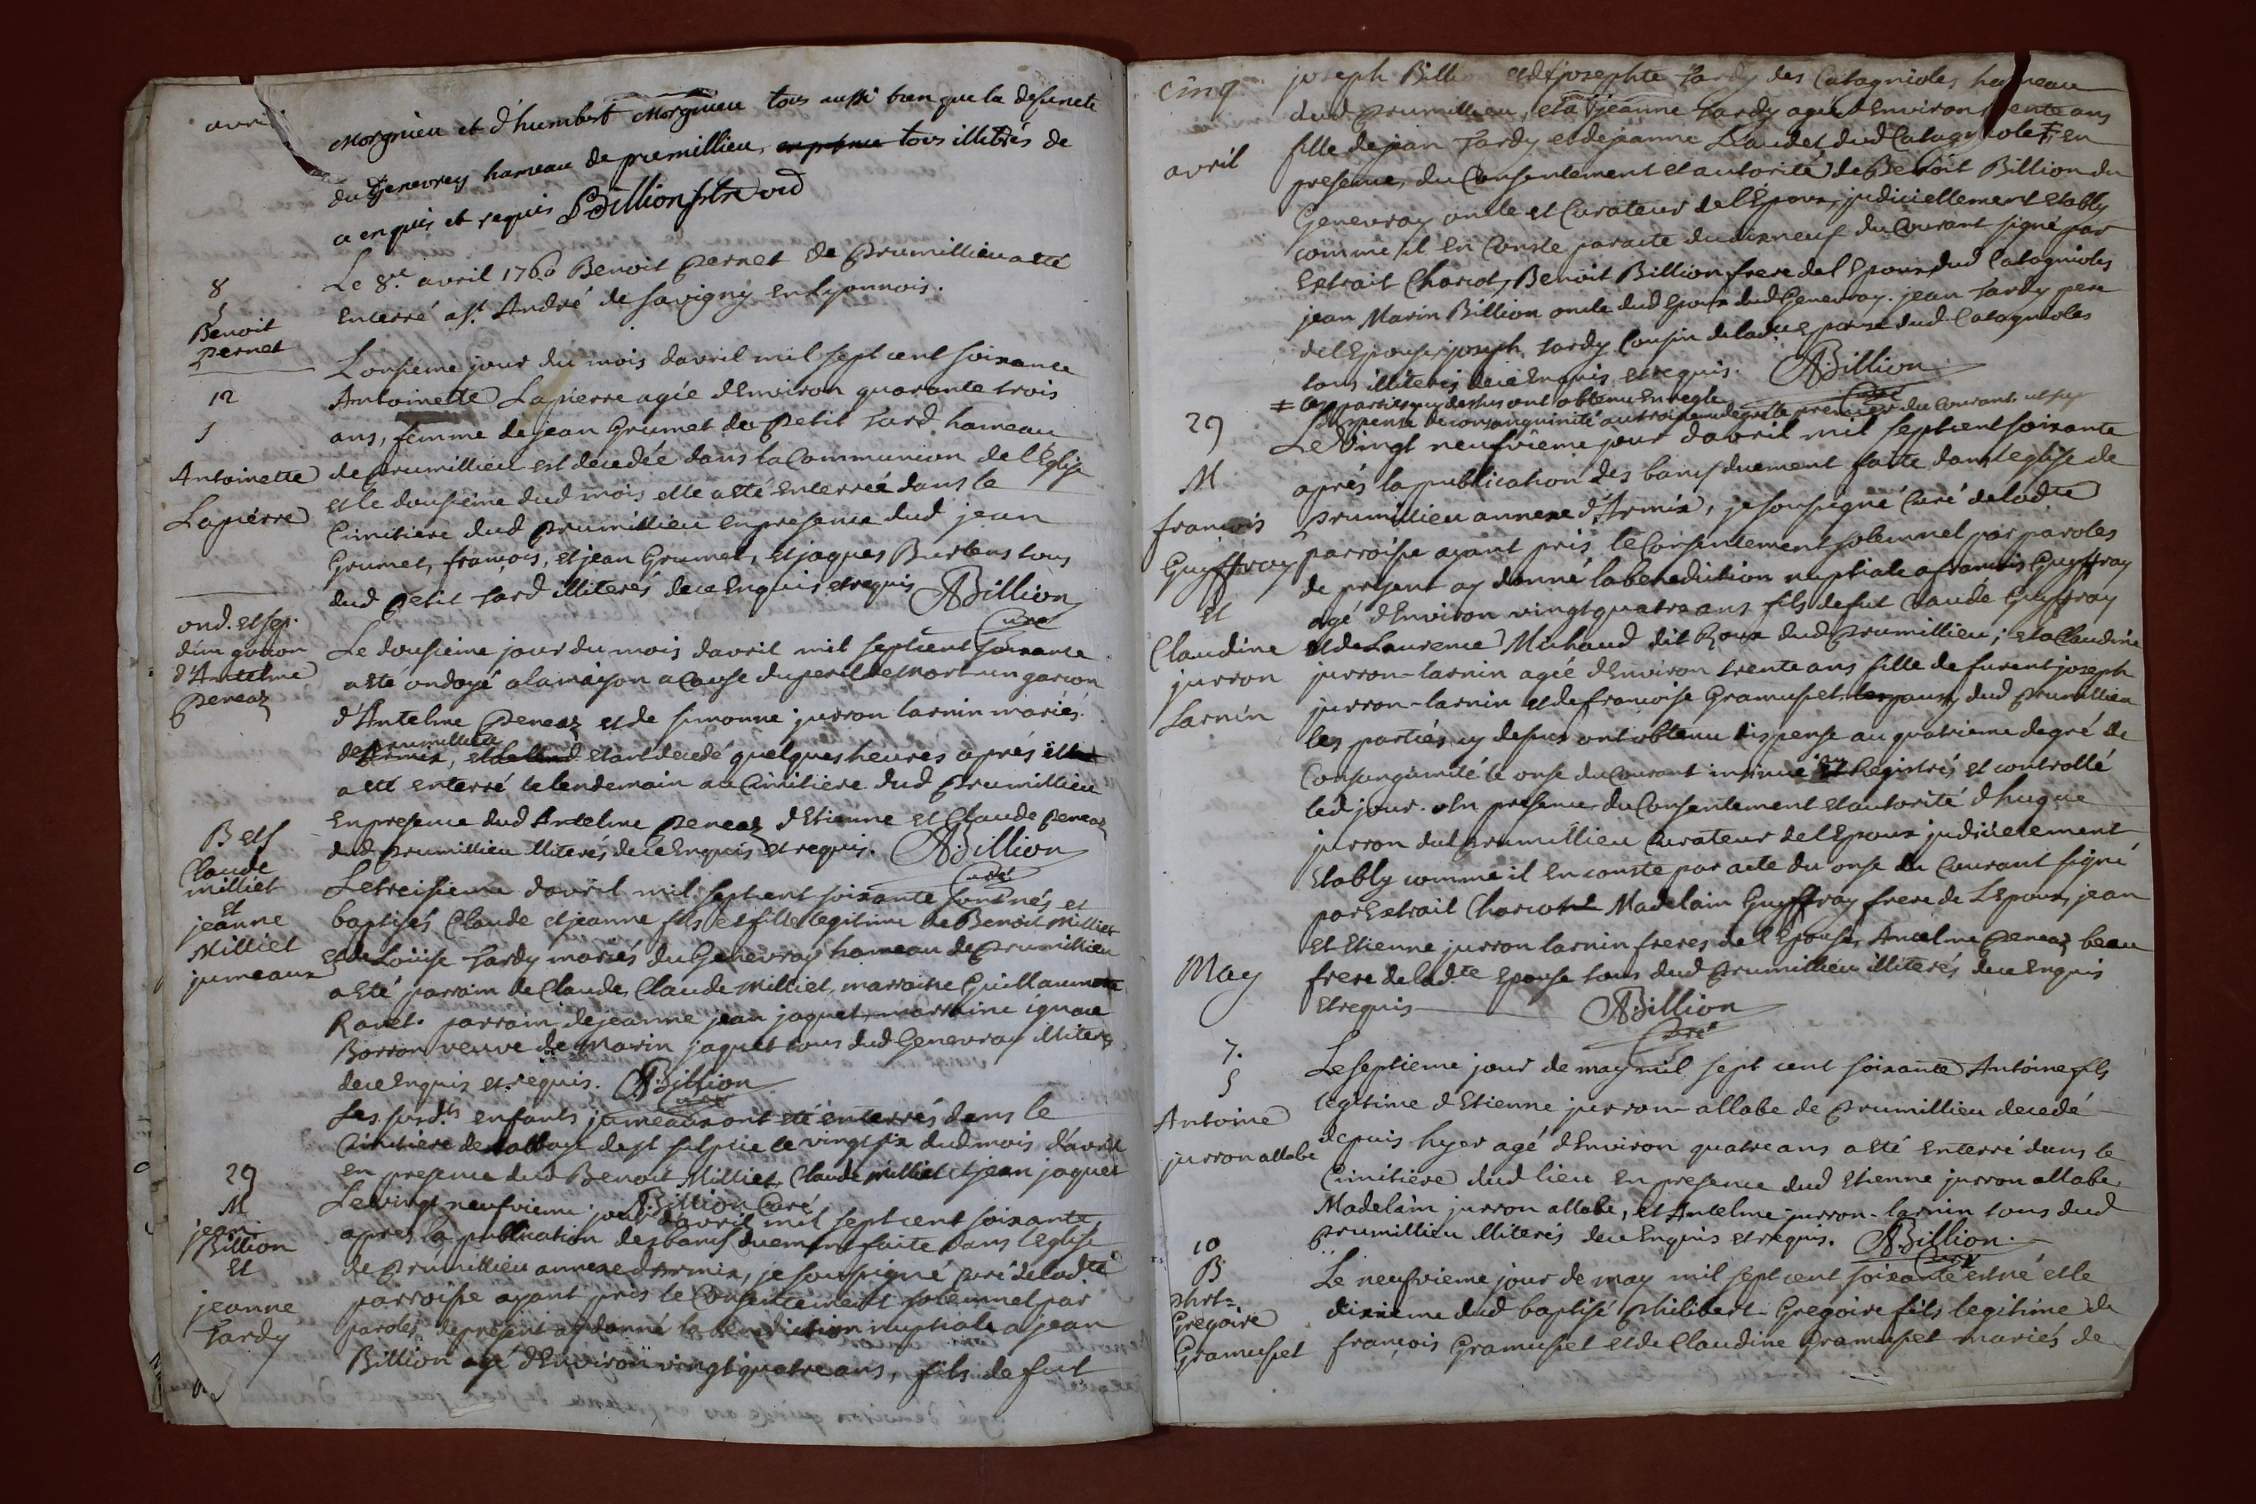 avril
Morgnieu et d'humbert Morgnieu tous aussi bien que la defuncte
du Genevrey hameau de premillieu, tous illitrés de
ce enquis et requis Billion
8
S
Benoit
pernet
Le 8.e avril 1760 Benoit pernet de prumillieu a eté
enterré a st. André de savigny en Lyonnois.
12
S
Antoinette
Lapierre
L'onsieme jour du mois davril mil sept cent soixante
Antoinette Lapierre agée d'Environ quarante trois
ans, femme de jean Grumet du petit Tard hameau
de prumillieu est decedée dans la Communion de l'Eglise
et le dousieme dud mois elle a eté enterrée dans le
Cimitiere dud prumillieu en presence dud jean
Grumet, francois, et jean Grumet, et jaques Burtens tous
dud petit Tard illiterés de ce Enquis et requis ABillion
Curé
ond. et sep.
d'un garçon
d'Antelme
peneaz
Le dousieme jour du mois davril mil sept cent soixante
a eté ondoyé a la maison a Cause du peril de mort un garcon
d'Antelme peneaz et de simonne jurron larnin mariés
de prumillieu
etant decedé quelques heures aprés
a eté enterré le lendemain au Cimitiere dud prumillieu
En presence dud Antelme peneaz d'Etienne et Claude peneaz
dud prumillieu illiterés de ce Enquis et requis. ABillion
Curé
B et S
Claude
milliet
et
jeanne
Milliet
jumeaux
Le treisieme davril mil sept cent soixante sont nés et
baptisés Claude et jeanne fils et fille legitime de Benoit Milliet
et de Loüise Tardy mariés du Genevray hameau de prumillieu
a eté parrain de Claude, Claude Milliet, marraine Guillaumette
Ravet. parrain de jeanne jean jaquet marraine ignace
Borron veuve de Marin jaquet tous dud Genevray illiterés
de ce Enquis et requis. ABillion
Curé
Les susd.ts enfants jumeaux ont eté enterrés dans le
Cimitiere de labbaye de st sulpice le vingt six dud mois davril
en presence dud Benoit Milliet, Claude milliet et jean jaquet
Billion Curé
29
M
jean
Billion
et
jeanne
Tardy
Le vingt neufvieme jour davril mil sept cent soixante,
aprés la publication des bans duement faite dans l'eglise
de prumillieu annexe d'Armix, je soussigné curé de ladte
parroisse ayant pris le Consentement solemnel par
paroles de present ay donné la benediction nuptiale a jean
Billion agé d'Environ vingt quatre ans, fils de fut
cinq
avril
joseph Billion et de josephte Tardy des Catagnioles hameau
dud prumillieu, et a jeanne Tardy agée d'Environ trente ans
fille de jean Tardy et de jeanne Laudet dud Catagniole ‡, en
presence, du Consentement et autorité de Benoit Billion du
Genevray oncle et Curateur de l'Epoux, judiciellement Etably
comme il en Conste par acte du dixneuf du Courant signé par
Extrait Charcot, Benoit Billion frere de l'Epoux dud Catagnioles
jean Marin Billion oncle dud Epoux dud Genevray. jean Tardy pere
de l'Epouse, joseph Tardy Cousin de lad.te Epouse dud Catagnioles
tous illiterés de ce Enquis et requis. ABillion
Curé
‡ les parties cy dessus ont obtenu En regle
dispense de consanguinité au troisieme degré le premier du Courant
29
M
francois
Guyffray
et
Claudine
jurron
Larnin
Le vingt neufvieme jour d'avril mil sept cent soixante
aprés la publication des bans duement faite dans leglise de
prumillieu annexe d'Armix, je soussigné Curé de ladte
parroisse ayant pris le Consentement solemnel par paroles
de present ay donné la benediction nuptiale a francois Guyffray
agé d'Environ vingt quatre ans fils de fut Claude Guyffray
et de Laurence Michaud dit Roux dud prumillieu; et a Claudine
jurron-larnin agée d'Environ trente ans fille de furent joseph
jurron-larnin et de francoise Gramuset dud prumillieu
les parties cy dessus ont obtenu dispense au quatrieme degré de
Consanguinité le onse du Courant insinué et Registrés et controllé
led jour. En presence, du Consentement et autorité d'hugue
jurron dud prumillieu Curateur de l'Epoux judicielement
Etably comme il en conste par acte du onse du Courant signé
par Extrait Charcot Madelain Guyffray frere de L'Epoux, jean
et Etienne jurron larnin freres de l'Epouse, Ancelme peneaz beau
frere de lad.te Epouse tous dud prumillieu illiterés de ce Enquis
et requis ABillion
Curé
May
7.
S
Antoine
jurron allabe
Le septieme jour de may mil sept cent soixante Antoine fils
legitime d'Etienne jurron-allabe de prumillieu decedé
depuis hyer agé d'Environ quatre ans a eté enterré dans le
Cimitière dud lieu En presence dud Etienne jurron allabe,
Madelain jurron allabe, et Antelme jurron-larnin tous dud
prumillieu illiterés de ce Enquis et requis. ABillion.
Curé
10
B
phrt=
Gregoire
Gramuset
Le neufvieme jour de may mil sept cent soixante est né et le
dixieme dud baptisé philibert-Gregoire fils legitime de
françois Gramuset et de Claudine Gramuset mariés de